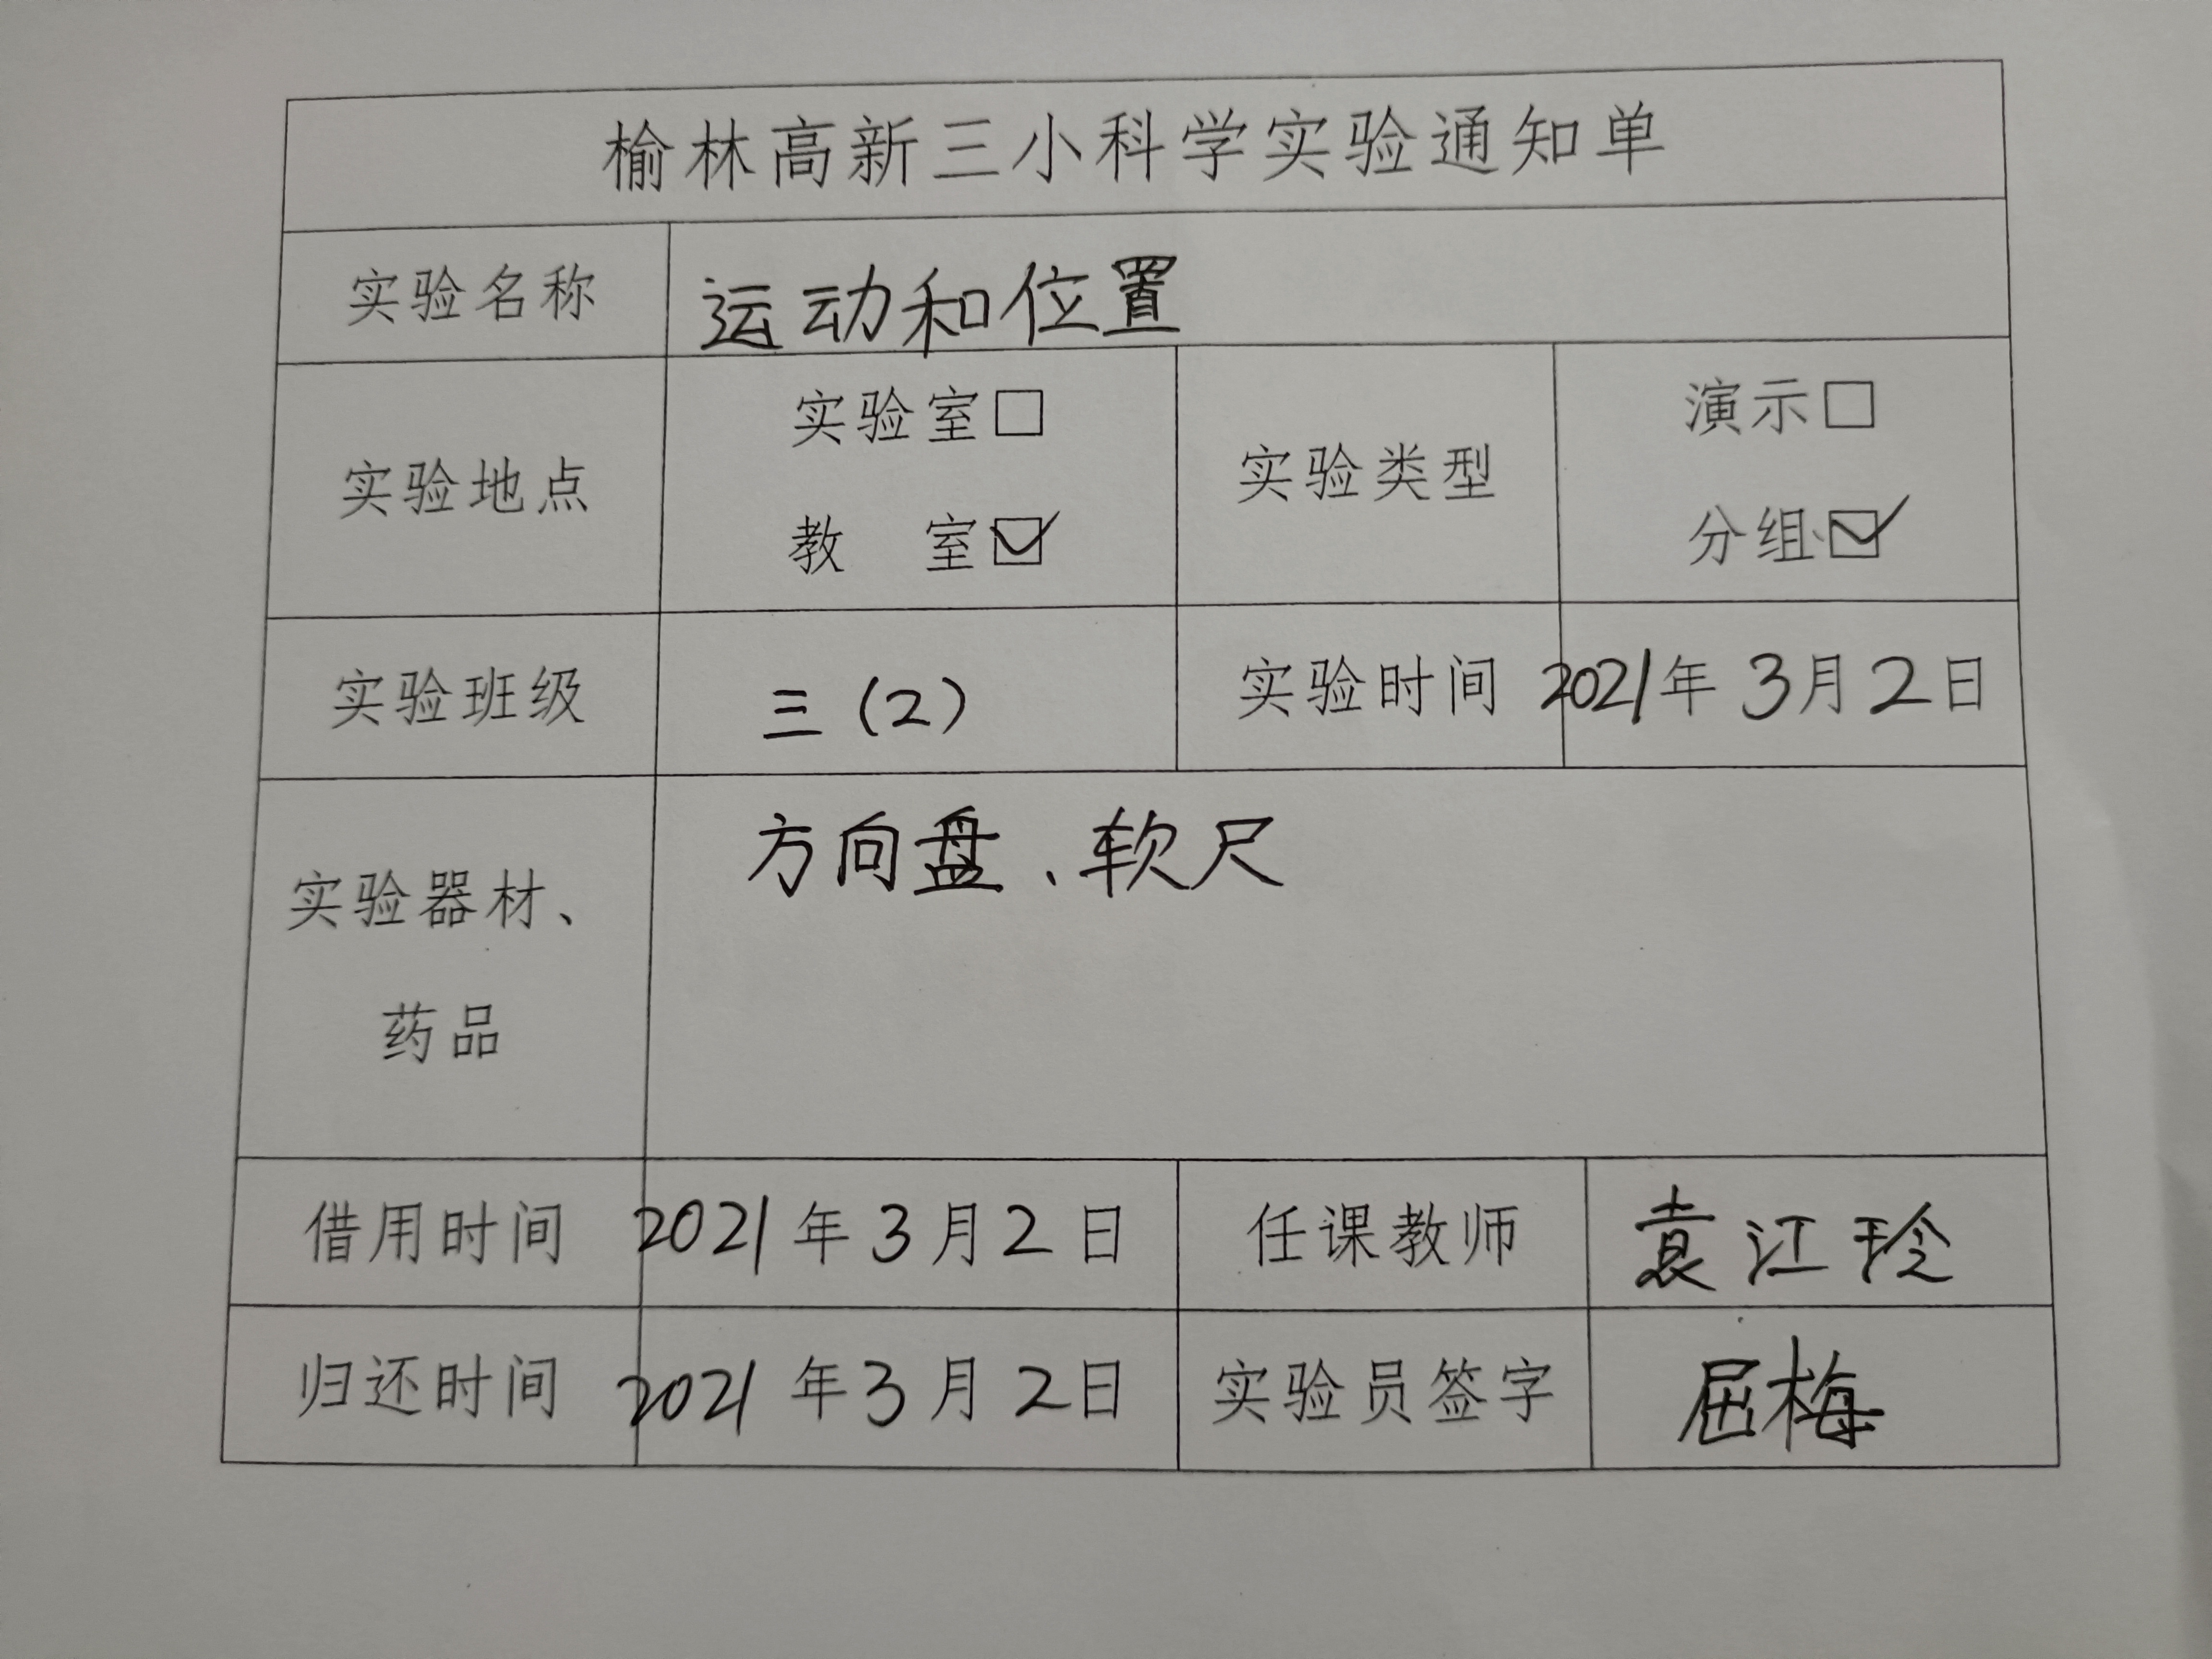 榆林高新三小科学实验通知单
实验名称 运动和位置
实验地点 实验室□ 教 室☑ 实验类型 演示□ 分组☑
实验班级 三（2） 实验时间 2021年3月2日
实验器材、药品 方向盘、软尺
借用时间 2021年3月2日 任课教师 袁江玲
归还时间 2021年3月2日 实验员签字 屈梅